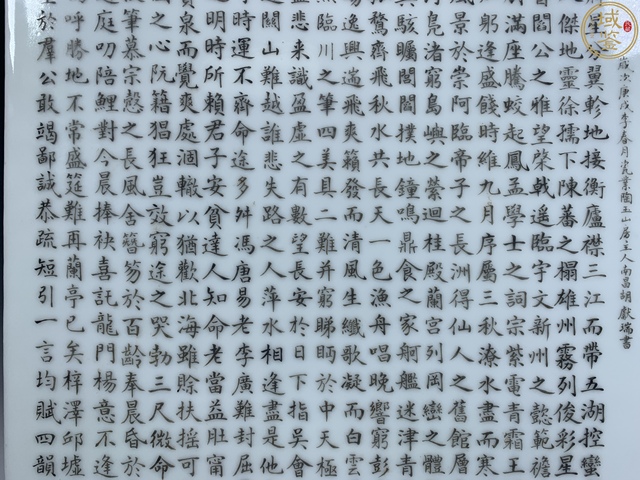 域鑒
次庚戌季春月瓷業陶玉山居主人南昌胡獻瑞書
星分翼軫地接衡廬襟三江而帶五湖控蠻
傑地靈徐孺下陳蕃之榻雄州霧列俊彩星
閻公之雅望棨戟遙臨宇文新州之懿範襜
滿座騰蛟起鳳孟學士之詞宗紫電青霜王
躬逢盛餞時維九月序屬三秋潦水盡而寒
風景於崇阿臨帝子之長洲得仙人之舊館層
汀鳧渚窮島嶼之縈迴桂殿蘭宮列岡巒之體
其駭矚閭閻撲地鐘鳴鼎食之家舸艦迷津青
鶩齊飛秋水共長天一色漁舟唱晚響窮彭
逸興遄飛爽籟發而清風生纖歌凝而白雲
臨川之筆四美具二難并窮睇眄於中天極
悲來識盈虛之有數望長安於日下指吳會
關山難越誰悲失路之人萍水相逢盡是他
時運不齊命途多舛馮唐易老李廣難封屈
明時所賴君子安貧達人知命老當益壯甯
泉而覺爽處涸轍以猶歡北海雖賒扶搖可
之心阮籍猖狂豈效窮途之哭勃三尺微命
筆慕宗愨之長風舍簪笏於百齡奉晨昏於
庭叨陪鯉對今晨捧袂喜託龍門楊意不逢
呼勝地不常盛筵難再蘭亭已矣梓澤邱墟
於羣公敢竭鄙誠恭疏短引一言均賦四韻